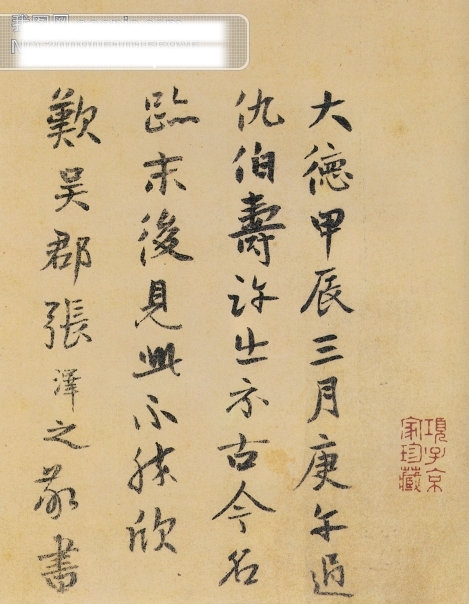 大德甲辰三月庚午過
仇伯壽許出示古今名
跡末後見此不勝欣
歎吳郡張澤之敬書
項子京
家珍藏